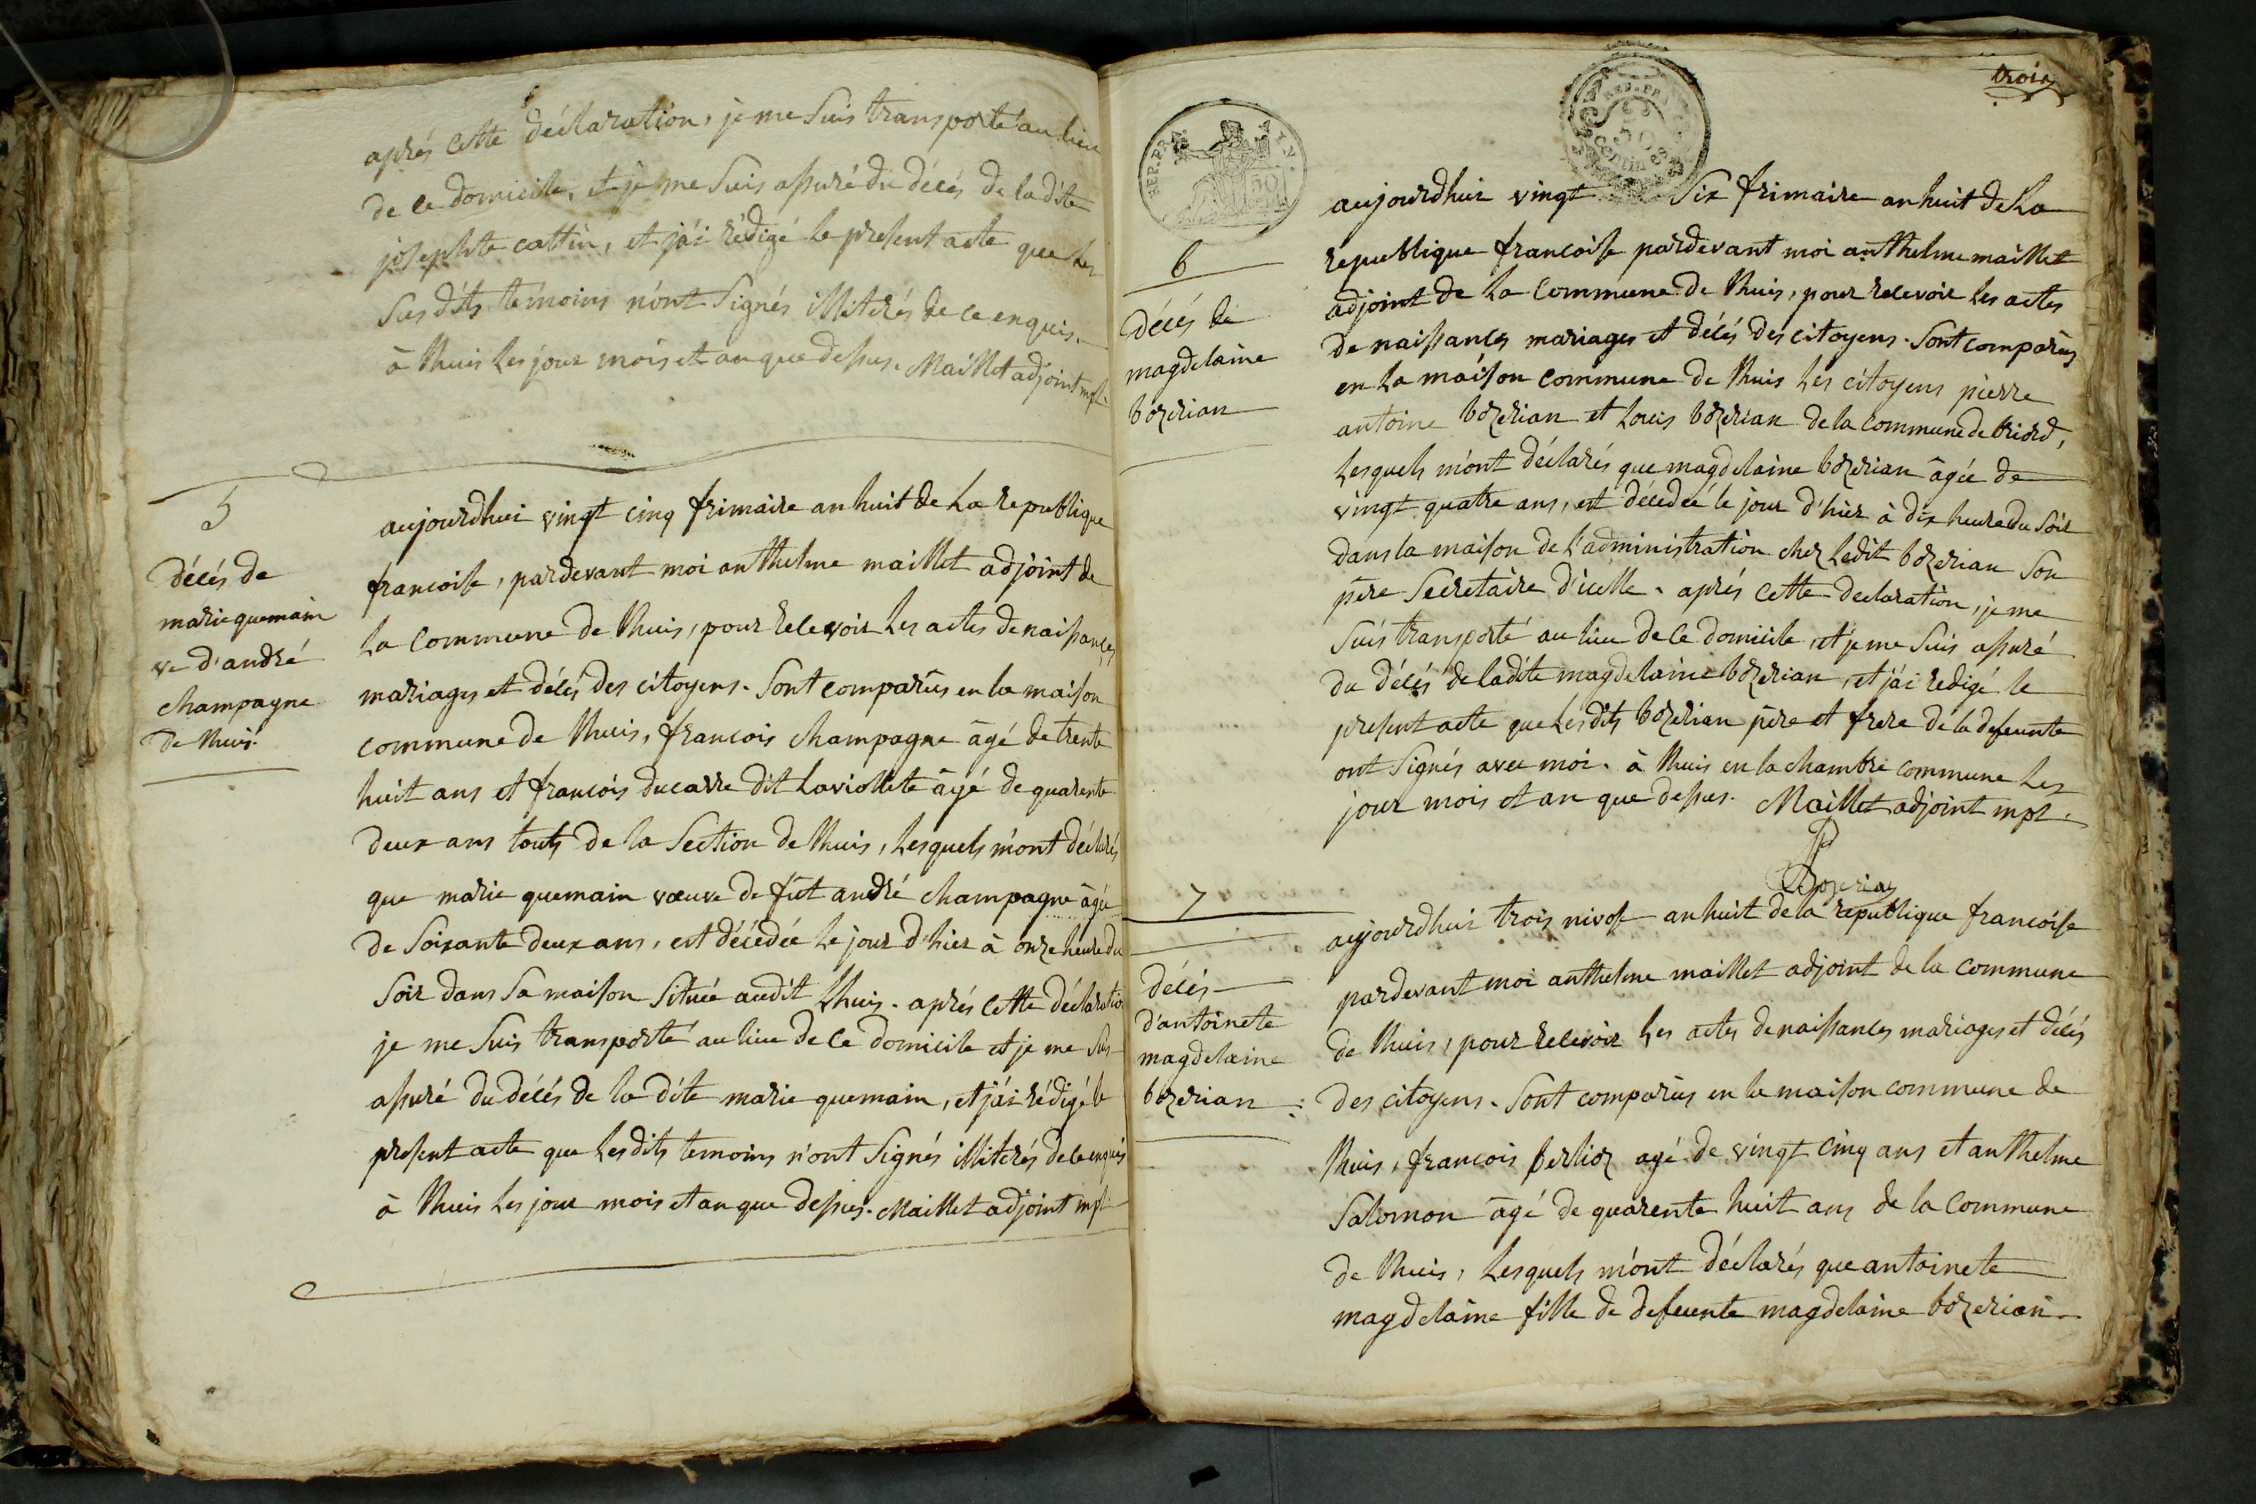 aprés cette déclaration, je me suis transporté au lieu
de ce domicile, et je me suis assuré du décés de ladite
josephte cattin, et j'ai rédigé le present acte que les
susdits témoins n'ont signés illiterés de ce enquis.
à lhuis les jour mois et an que dessus. Maillet adjoint mpl
5
décés de
marie quemain
ve d'andré
champagne
de lhuis.
aujourdhui vingt cinq frimaire an huit de la republique
francoise, pardevant moi anthelme maillet adjoint de
la commune de lhuis, pour recevoir les actes de naissances
mariages et décés des citoyens. sont comparûs en la maison
commune de lhuis, francois champagne âgé de trente
huit ans et francois ducarre dit laviollete âgé de quarente
deux ans touts de la section de lhuis, lesquels m'ont déclarés
que marie quemain vœuve de fût andré champagne âgée
de soixante deux ans, est décedée le jour d'hier à onze heure du
soir dans sa maison située audit lhuis. aprés cette déclaration
je me suis transporté au lieu de ce domicile et je me suis
assuré du décés de la dite marie quemain, et j'ai rédigé le
present acte que lesdits temoins n'ont signés illiterés de ce enquis
à lhuis les jour mois et an que dessus. Maillet adjoint mpl
trois
REP. FRA
50
centimes
6
décés de
magdelaine
bozerian
aujourdhui vingt six frimaire an huit de la
republique francoise pardevant moi anthelme maillet
adjoint de la commune de lhuis, pour recevoir les actes
de naissances mariages et décés des citoyens. sont comparûs
en la maison commune de lhuis les citoyens pierre
antoine bozerian et louis bozerian de la commune de briord,
lesquels m'ont déclarés que magdelaine bozerian âgée de
vingt quatre ans, est décedée le jour d'hier à dix heure du soir
dans la maison de l'administration chez ledit bozerian son
pere secretaire d'icelle. aprés cette declaration, je me
suis transporté au lieu de ce domicile, et je me suis assuré
du décés de ladite magdelaine bozerian, et j'ai redigé le
present acte que lesdits bozerian pere et frere de la defeunte
ont signés avec moi. à lhuis en la chambre commune les
jour mois et an que dessus. Maillet adjoint mpl.
Bozerian
7
décés
d'antoinete
magdelaine
bozerian
aujourdhui trois nivose an huit de la republique francoise
pardevant moi anthelme maillet adjoint de la commune
de lhuis, pour recevoir les actes de naissances mariages et décés
des citoyens. sont comparûs en la maison commune de
lhuis, francois berlioz agé de vingt cinq ans et anthelme
salomon âgé de quarente huit ans de la commune
de lhuis, lesquels m'ont déclarés que antoinete
magdelaine fille de defeunte magdelaine bozerian